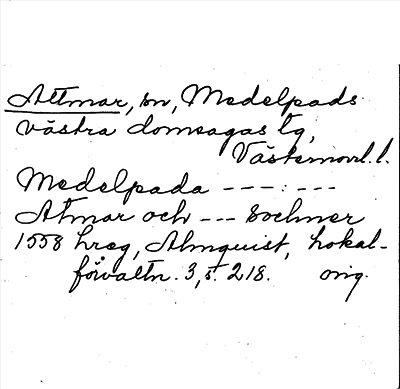 Attmar, sn, Medelpads
västra domsagas tg,
Västernorrl. l.
Medelpada ---:---
Atmar och --- sochner
1558 hreg, Almquist, Lokal-
förvaltn. 3, s. 218. orig.